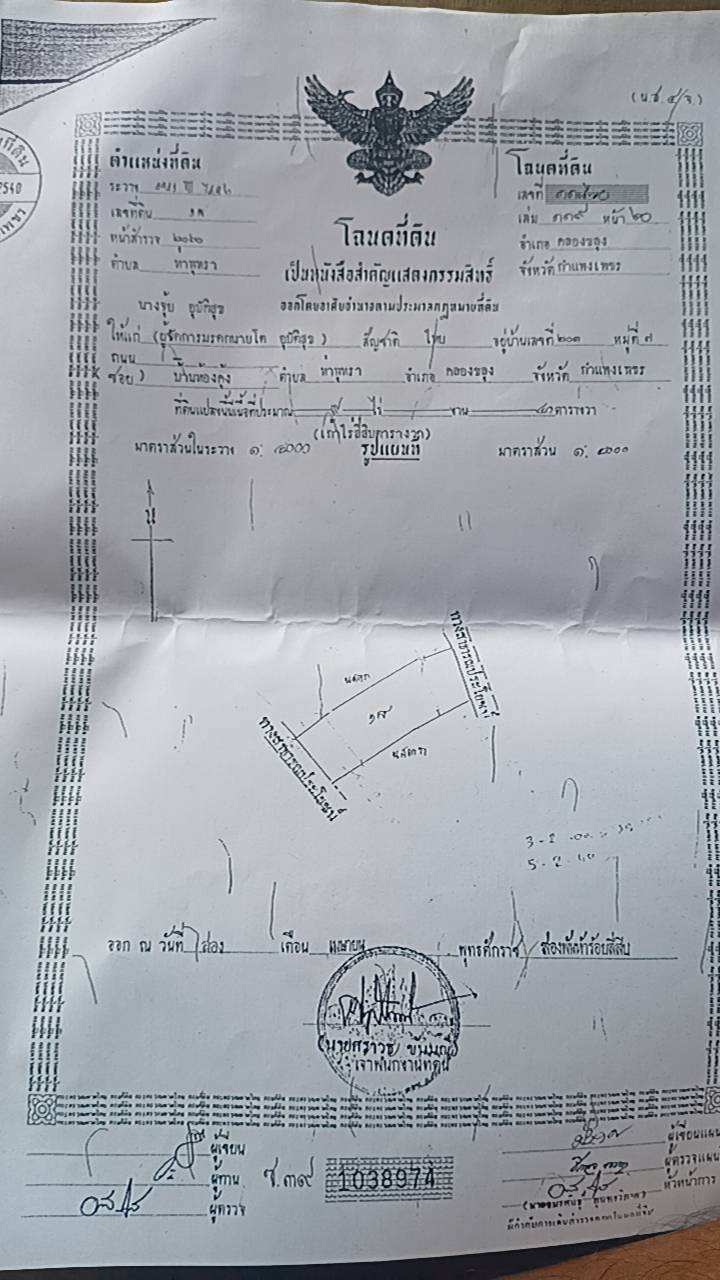 (น.ส. ๔ จ.)
ตำแหน่งที่ดิน
โฉนดที่ดิน
ระวาง
เลขที่
เลขที่ดิน ๑๙
เล่ม ๑๑๙ หน้า ๒๐
หน้าสำรวจ ๒๐๒๐
อำเภอ คลองขลุง
ตำบล ท่าพุทรา
จังหวัด กำแพงเพชร
๒๕๔๐
โฉนดที่ดิน
เป็นหนังสือสำคัญแสดงกรรมสิทธิ์
ออกโดยอาศัยอำนาจตามประมวลกฎหมายที่ดิน
นางจุ้ย อุบัติสุข
ให้แก่ (ผู้จัดการมรดกนายโต อุบัติสุข) สัญชาติ ไทย อยู่บ้านเลขที่ ๒๐๓ หมู่ที่ ๗
ถนน
ซอย) บ้านท้องคุ้ง ตำบล ท่าพุทรา อำเภอ คลองขลุง จังหวัด กำแพงเพชร
ที่ดินแปลงนี้มีเนื้อที่ประมาณ ๙ ไร่ งาน ๔๐ ตารางวา
(เก้าไร่สี่สิบตารางวา)
มาตราส่วนในระวาง ๑: ๔๐๐๐ รูปแผนที่ มาตราส่วน ๑:
น
ทางสาธารณประโยชน์
๑๙
ทางสาธารณประโยชน์
5-2-40
ออก ณ วันที่ สอง เดือน เมษายน พุทธศักราช สองพันห้าร้อยสี่สิบ
เจ้าพนักงานที่ดิน
ผู้เขียน
ผู้ทาน
ผู้ตรวจ
ช.๓๙
1038974
ผู้เขียนแผนที่
ผู้ตรวจแผนที่
หัวหน้าการ